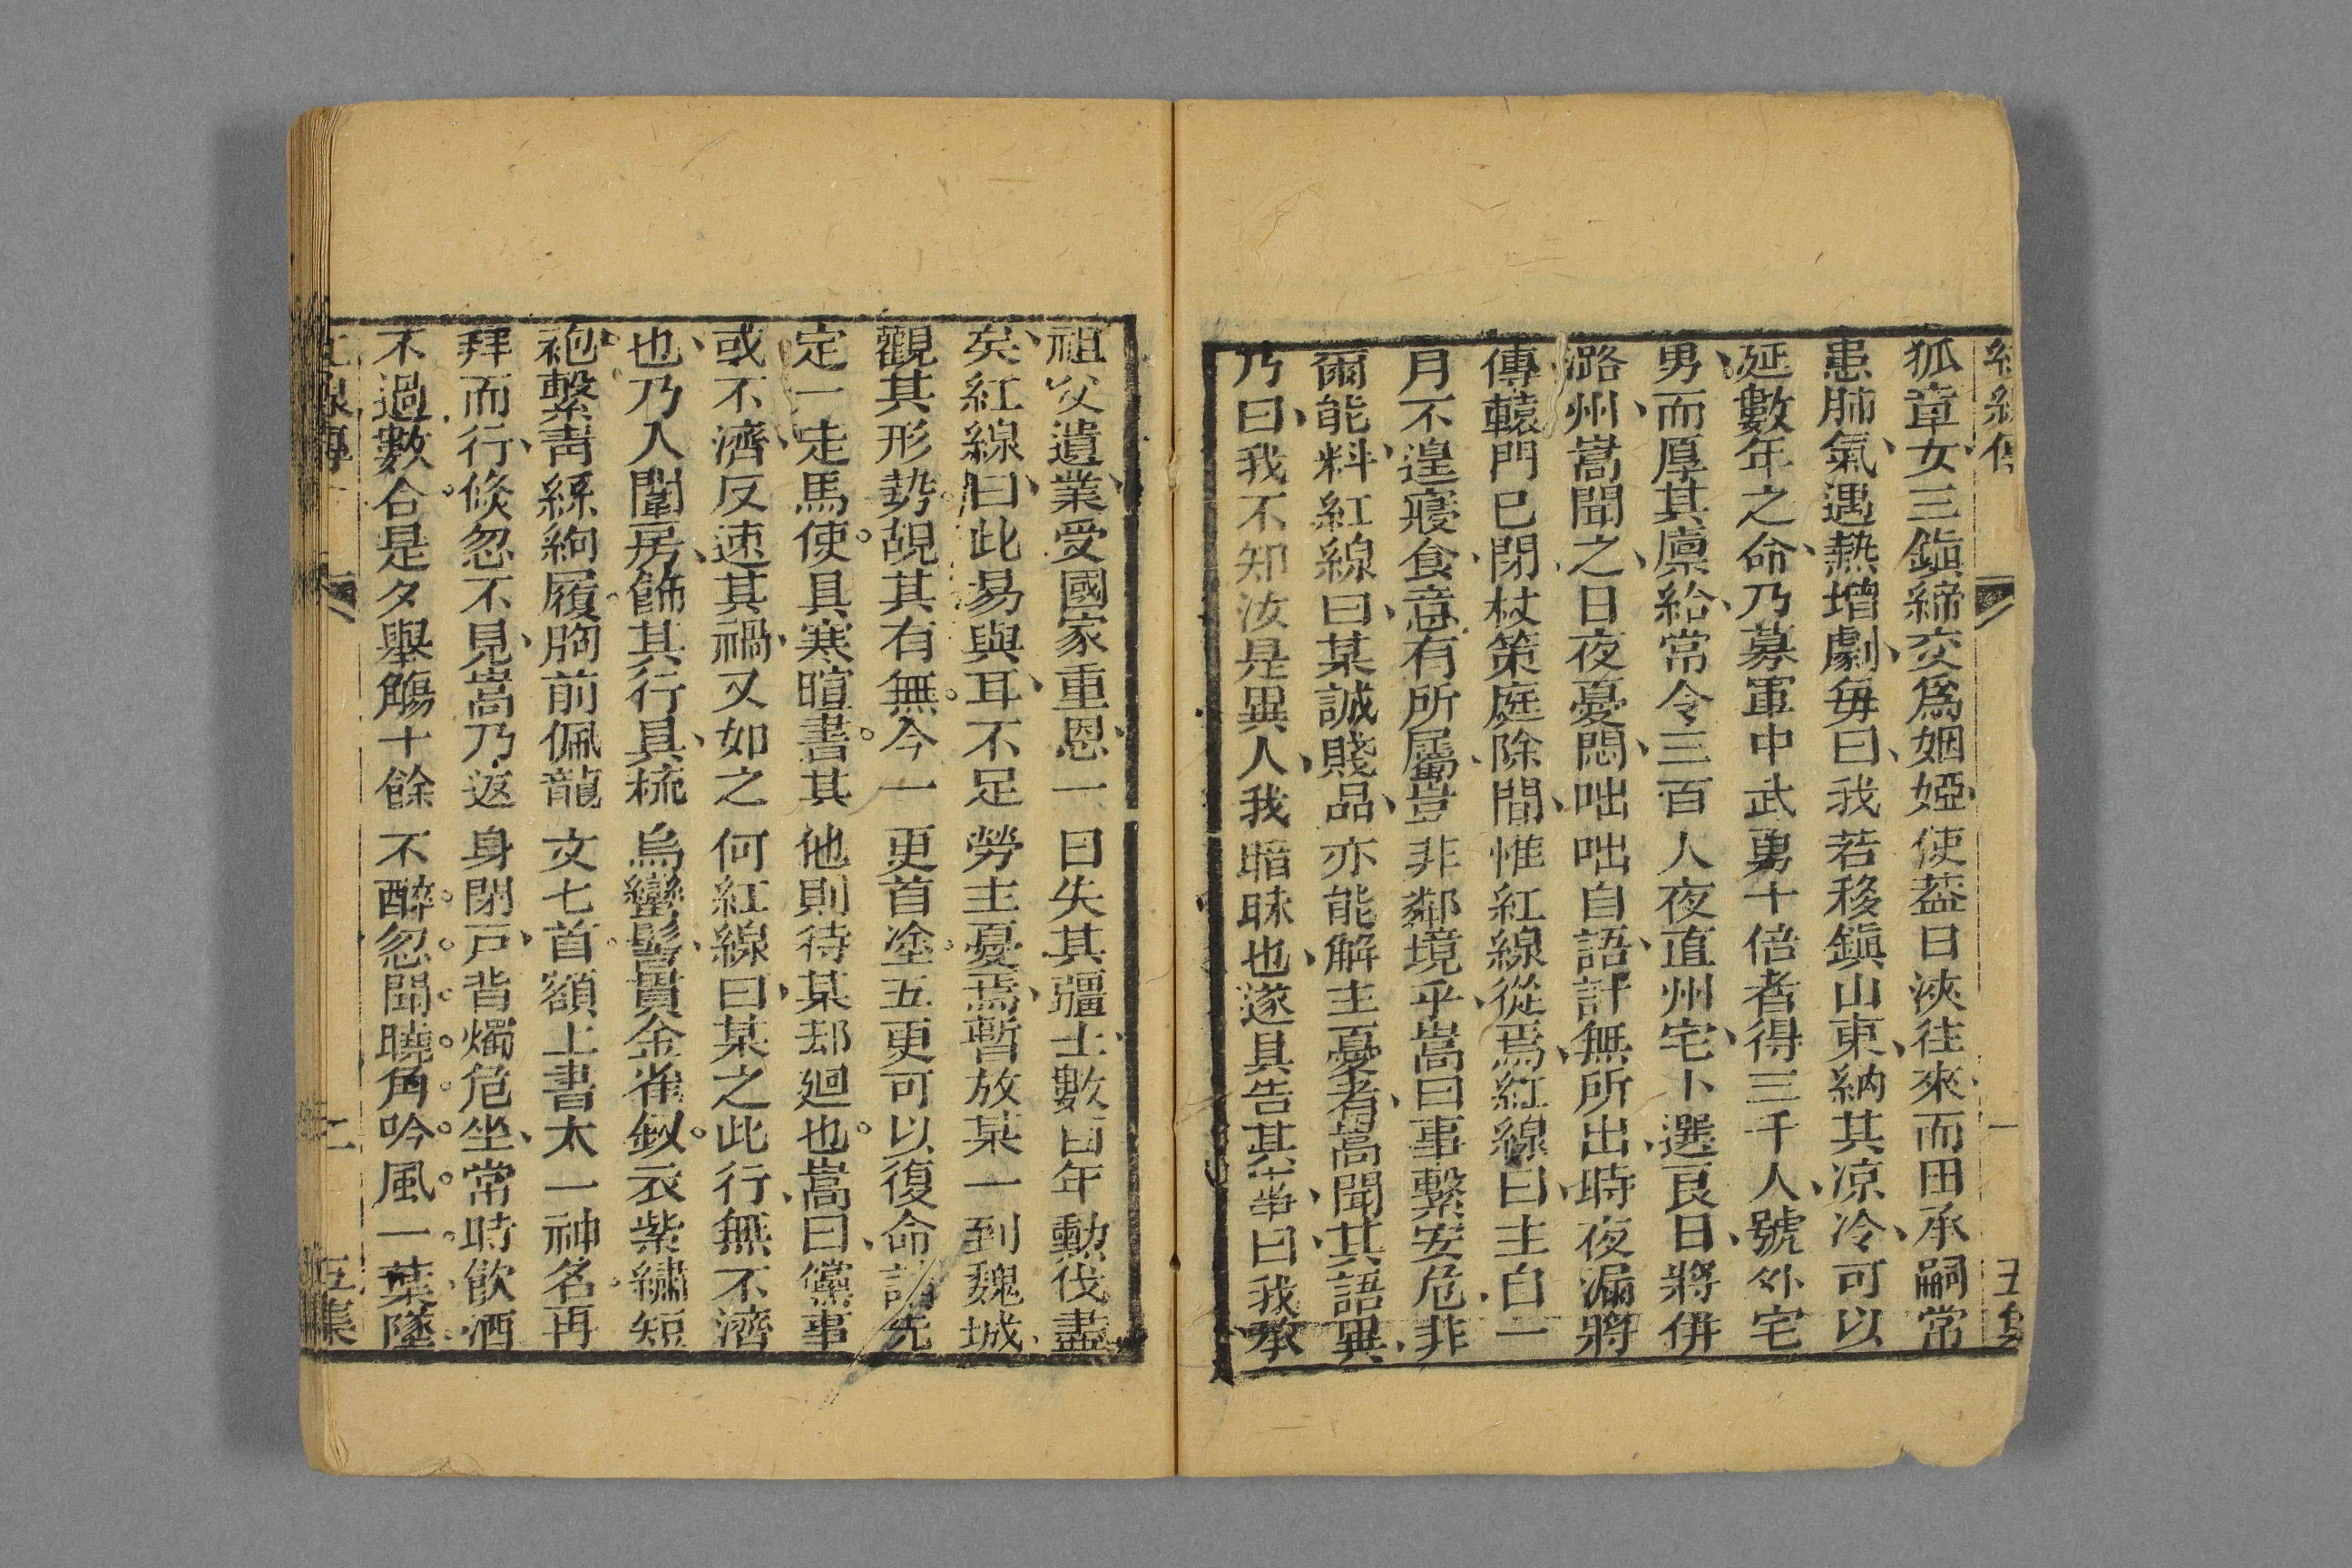 狐章女三鎭締交爲姻婭使蓋日浹往來而田承嗣常
患肺氣遇熱增劇每曰我若移鎭山東納其凉冷可以
延數年之命乃募軍中武勇十倍者得三千人號外宅
男而厚其廪給常令三百人夜直州宅卜選良日將倂
潞州嵩聞之日夜憂悶咄咄自語計無所出時夜漏將
傳轅門已閉杖策庭除間惟紅線從焉紅線曰主自一
月不遑寢食意有所屬豈非鄰境乎嵩曰事繫安危非
爾能料紅線曰某誠賤品亦能解主憂者嵩聞其語異
乃曰我不知汝是異人我暗昧也遂具告其事曰我承
祖父遺業受國家重恩一日失其疆土數百年勳伐盡
矣紅線曰此易與耳不足勞主憂焉暫放某一到魏城
觀其形勢覘其有無今一更首塗五更可以復命請先
定一走馬使具寒暄書其他則待某却廻也嵩曰儻事
或不濟反速其禍又如之何紅線曰某之此行無不濟
也乃入闈房飾其行具梳烏蠻髻貫金雀釵衣紫繡短
袍繫青絲絢履胸前佩龍文七首額上書太一神名再
拜而行倐忽不見嵩乃返身閉戸背燭危坐常時飮酒
不過數合是夕舉觴十餘不醉忽聞曉角吟風一葉墜
二
五集